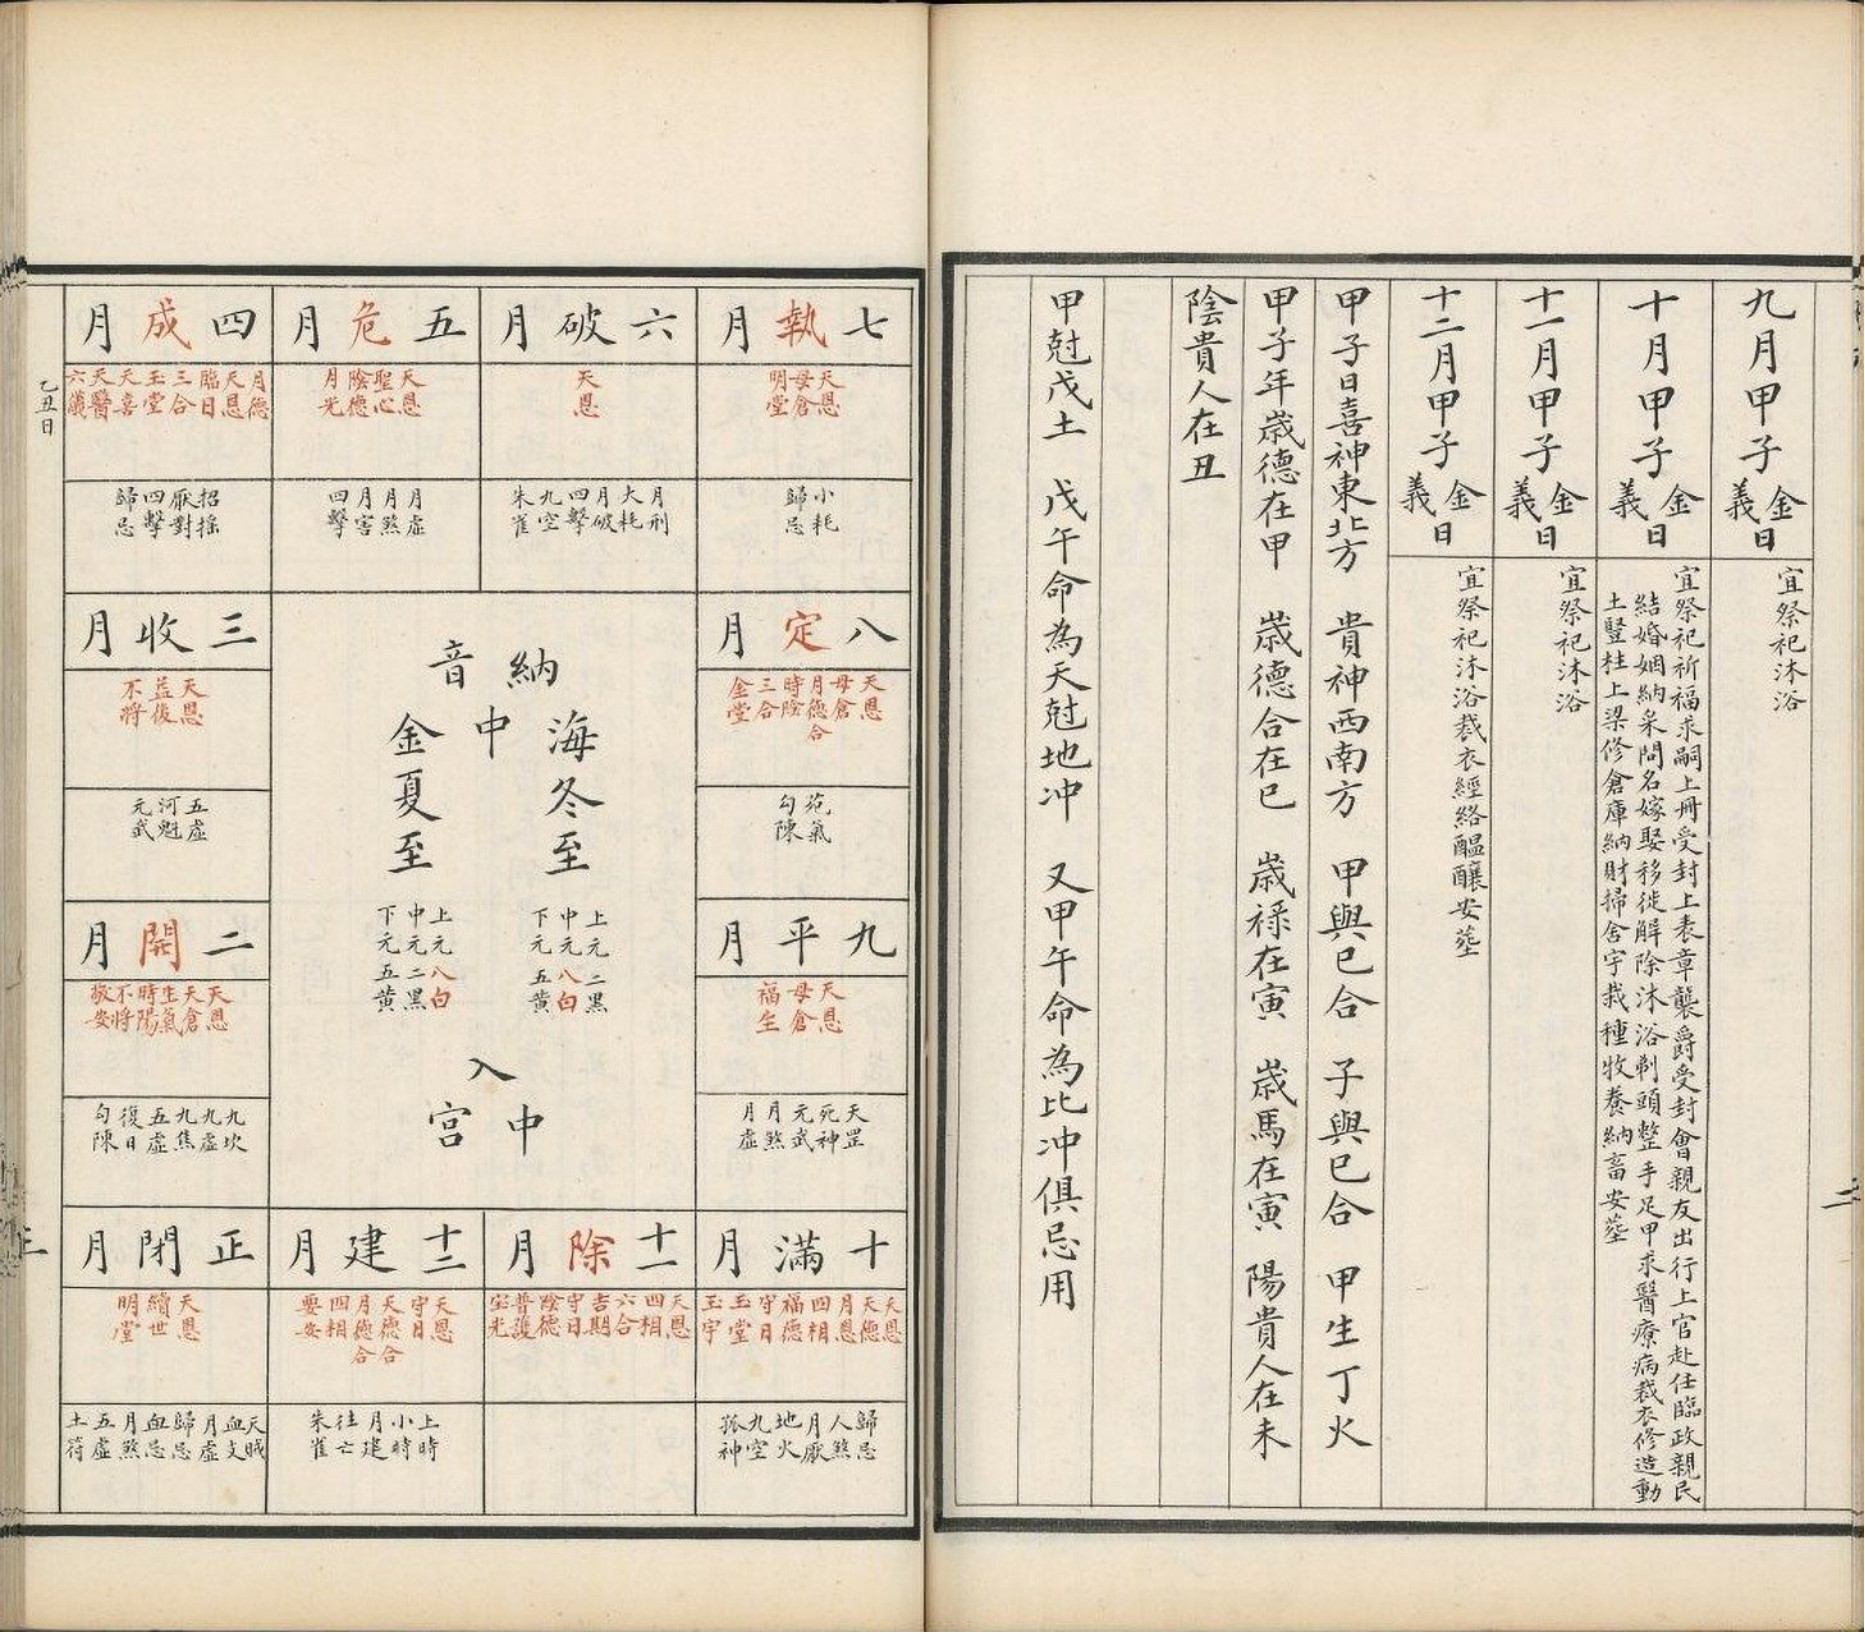 九月甲子金義日
宜祭祀沐浴
十月甲子金義日
宜祭祀祈福求嗣上冊受封上表章襲爵受封會親友出行上官赴任臨政親民
結婚姻納采問名嫁娶移徙解除沐浴剃頭整手足甲求醫療病裁衣修造動
土豎柱上梁修倉庫納財掃舍宇栽種牧養納畜安葬
十一月甲子金義日
宜祭祀沐浴
十二月甲子金義日
宜祭祀沐浴裁衣經絡醞釀安葬
甲子日喜神東北方 貴神西南方 甲與己合 子與巳合 甲生丁火
甲子年歲德在甲 歲德合在己 歲祿在寅 歲馬在寅 陽貴人在未
陰貴人在丑
甲尅戊土 戊午命為天尅地冲 又甲午命為比冲俱忌用
二
七執月
天恩 母倉 明堂
小耗 歸忌
六破月
天恩
月刑 大耗 月破 四擊 九空 朱雀
五危月
天恩 聖心 陰德 月光
月虛 月煞 月害 四擊
四成月
月德 天恩 臨日 三合 玉堂 天喜 天醫 六儀
招摇 厭對 四擊 歸忌
八定月
天恩 母倉 月德合 時陰 三合 金堂
苑氣 勾陳
三收月
天恩 益後 不將
五虛 河魁 元武
九平月
天恩 母倉 福生
天罡 死神 元武 月煞 月虛
二開月
天恩 天倉 生氣 時陽 不將 敬安
九坎 九虛 九焦 五虛 復日 勾陳
納音
海中金
冬至
上元二黑
中元八白
下元五黃
夏至
上元八白
中元二黑
下元五黃
入中宮
十滿月
天恩 天德 月恩 四相 福德 守日 玉堂 玉宇
歸忌 人煞 月厭 地火 九空 孤神
十一除月
天恩 四相 六合 吉期 守日 陰德 普護 宝光
十二建月
天恩 守日 天德合 月德合 四相 要安
上時 小時 月建 往亡 朱雀
正閉月
天恩 續世 明堂
天賊 血支 月虛 歸忌 血忌 月煞 五虛 土符
乙丑日